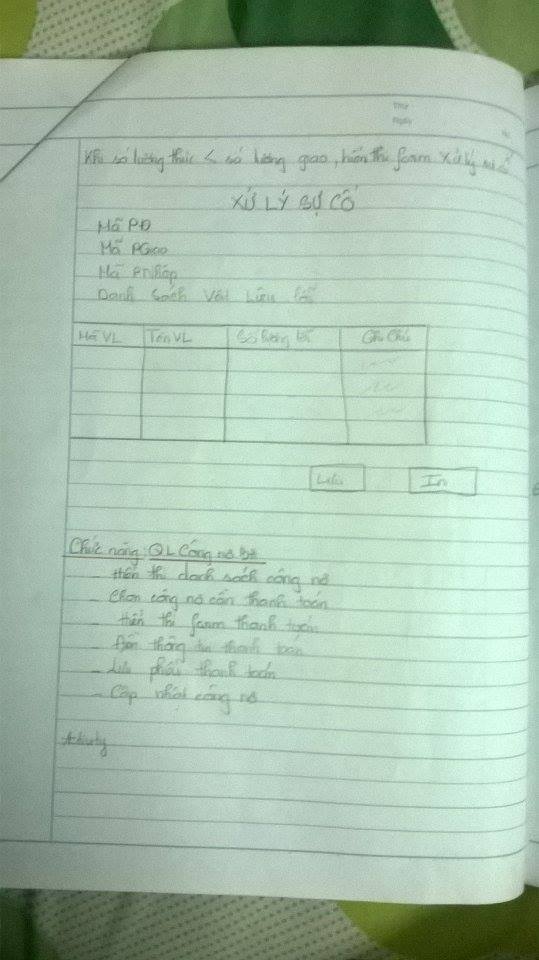 Thứ
Ngày
Khi số lượng thực < số lượng giao, hiển thị form xử lý sự cố
XỬ LÝ SỰ CỐ
Mã PĐ
Mã PGiao
Mã PNhập
Danh sách Vật Liệu
Mã VL Tên VL Số lượng Ghi Chú
Lưu In
Chức năng: QL Công nợ
- Hiển thị danh sách công nợ
- Chọn công nợ cần thanh toán
- Hiển thị form thanh toán
- Điền thông tin thanh toán
- Lưu phiếu thanh toán
- Cập nhật công nợ
Activity